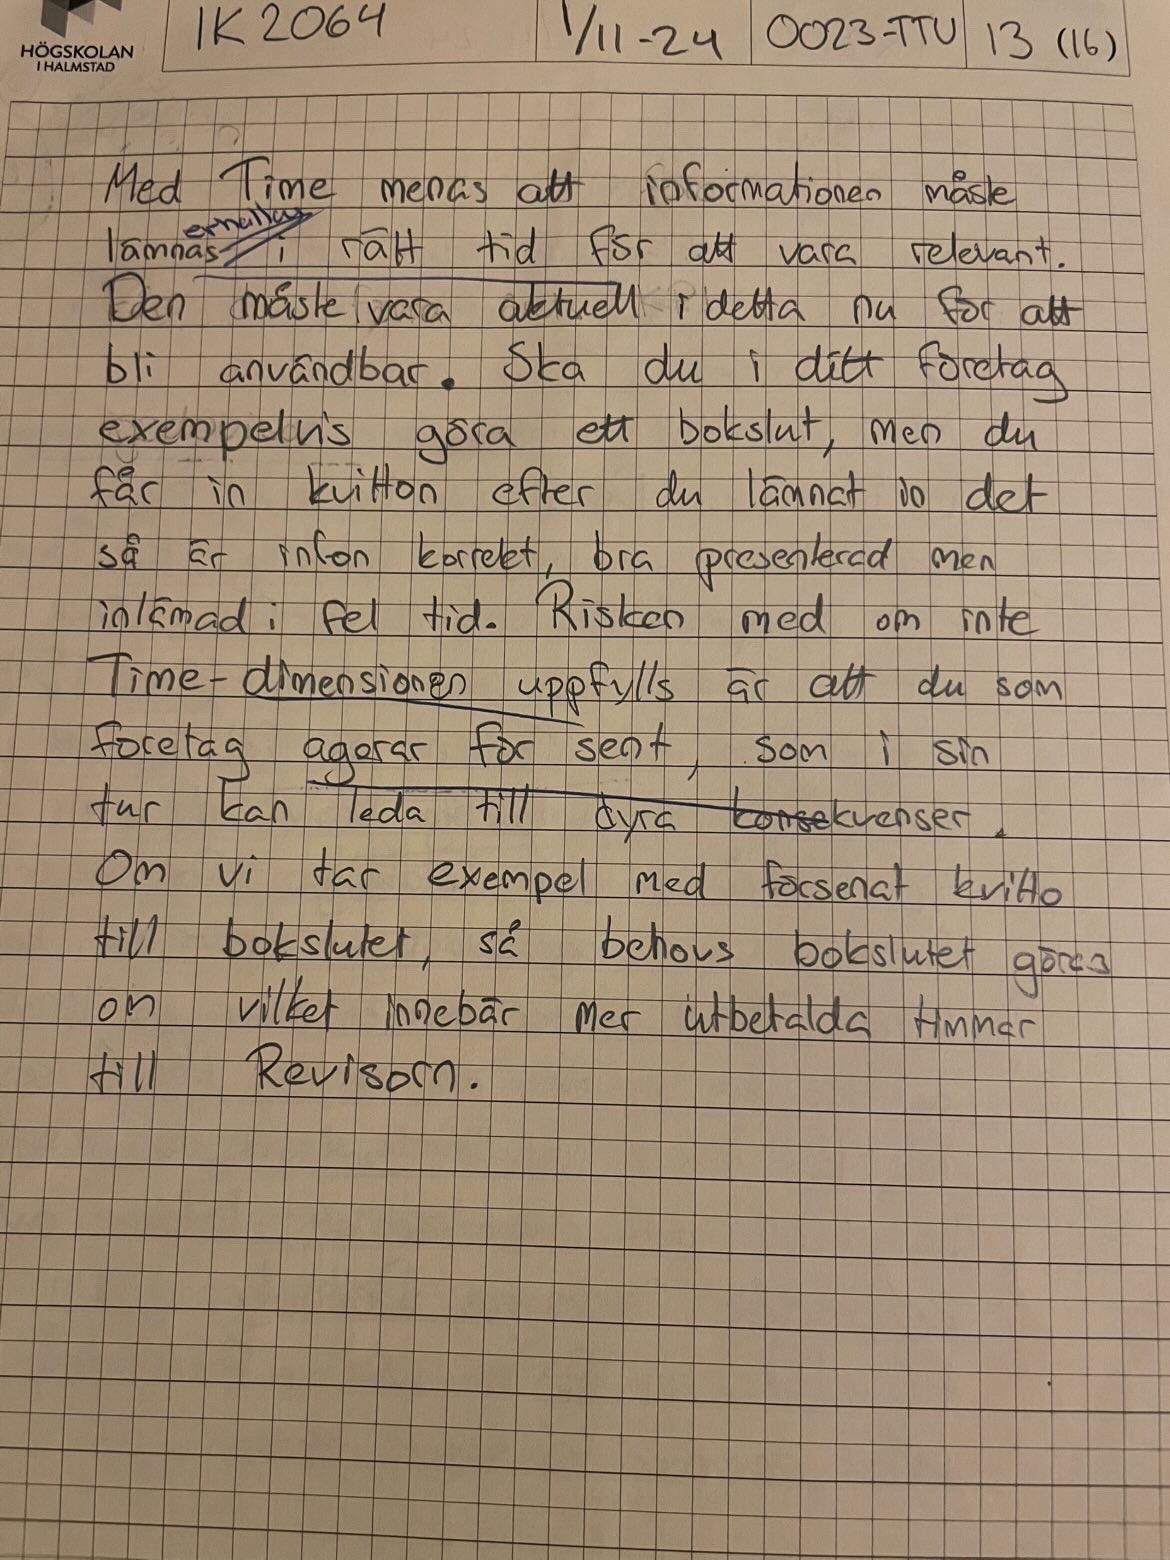 HÖGSKOLAN
I HALMSTAD
IK2064
1/11-24
0023-TTU
13 (16)
Med Time menas att informationen måste
erhållas
lämnas i rätt tid för att vara relevant.
Den måste vara aktuell i detta nu för att
bli användbar. Ska du i ditt företag
exempelvis göra ett bokslut, men du
får in kvitton efter du lämnat in det
så är infon korrekt, bra presenterad men
inlämad i fel tid. Risken med om inte
Time-dimensionen uppfylls är att du som
företag agerar för sent, som i sin
tur kan leda till dyra konsekvenser.
Om vi tar exempel med försenat kvitto
till bokslutet, så behövs bokslutet göras
om vilket innebär mer utbetalda timmar
till Revisorn.